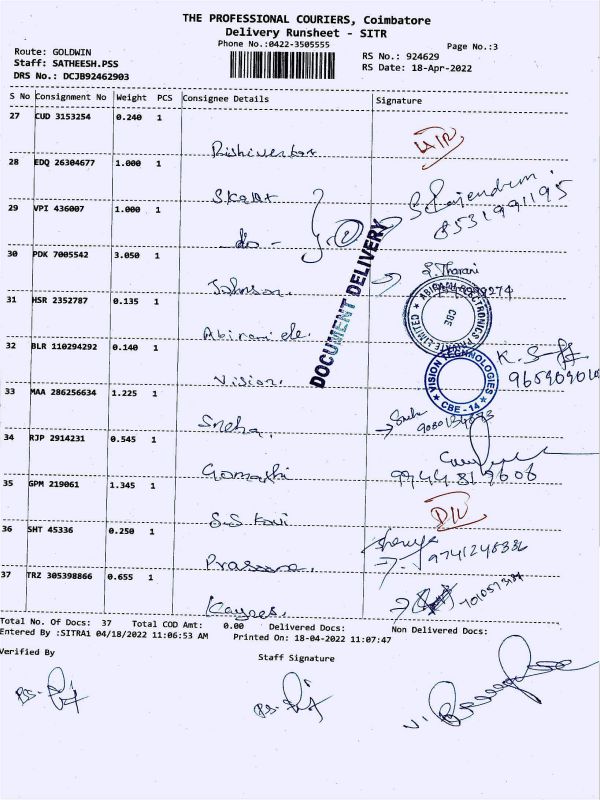 THE PROFESSIONAL COURIERS, Coimbatore
Delivery Runsheet - SITR
Phone No.:0422-3505555
Page No.:3
Route: GOLDWIN
Staff: SATHEESH.PSS
DRS No.: DCJB92462903
RS No.: 924629
RS Date: 18-Apr-2022
S No Consignment No Weight PCS Consignee Details Signature
27 CUD 3153254 0.240 1
28 EDQ 26304677 1.000 1
S. Rajendran.
8531991195
29 VPI 436007 1.000 1
do -
DOCUMENT DELIVERY
30 PDK 7005542 3.050 1
Johnson.
S. Tharani
31 HSR 2352787 0.135 1
Abirami ele.
ABIRAMI ELECTRONICS PRIVATE LIMITED
CBE
32 BLR 110294292 0.140 1
Vision.
VISION TECHNOLOGIES
CBE - 14
33 MAA 286256634 1.225 1
Sneha.
34 RJP 2914231 0.545 1
Gomathi
9944819606
35 GPM 219061 1.345 1
36 SHT 45336 0.250 1
Prasanna.
9741248386
37 TRZ 305398866 0.655 1
Total No. Of Docs: 37 Total COD Amt: 0.00 Delivered Docs: Non Delivered Docs:
Entered By :SITRA1 04/18/2022 11:06:53 AM Printed On: 18-04-2022 11:07:47
Verified By
Staff Signature